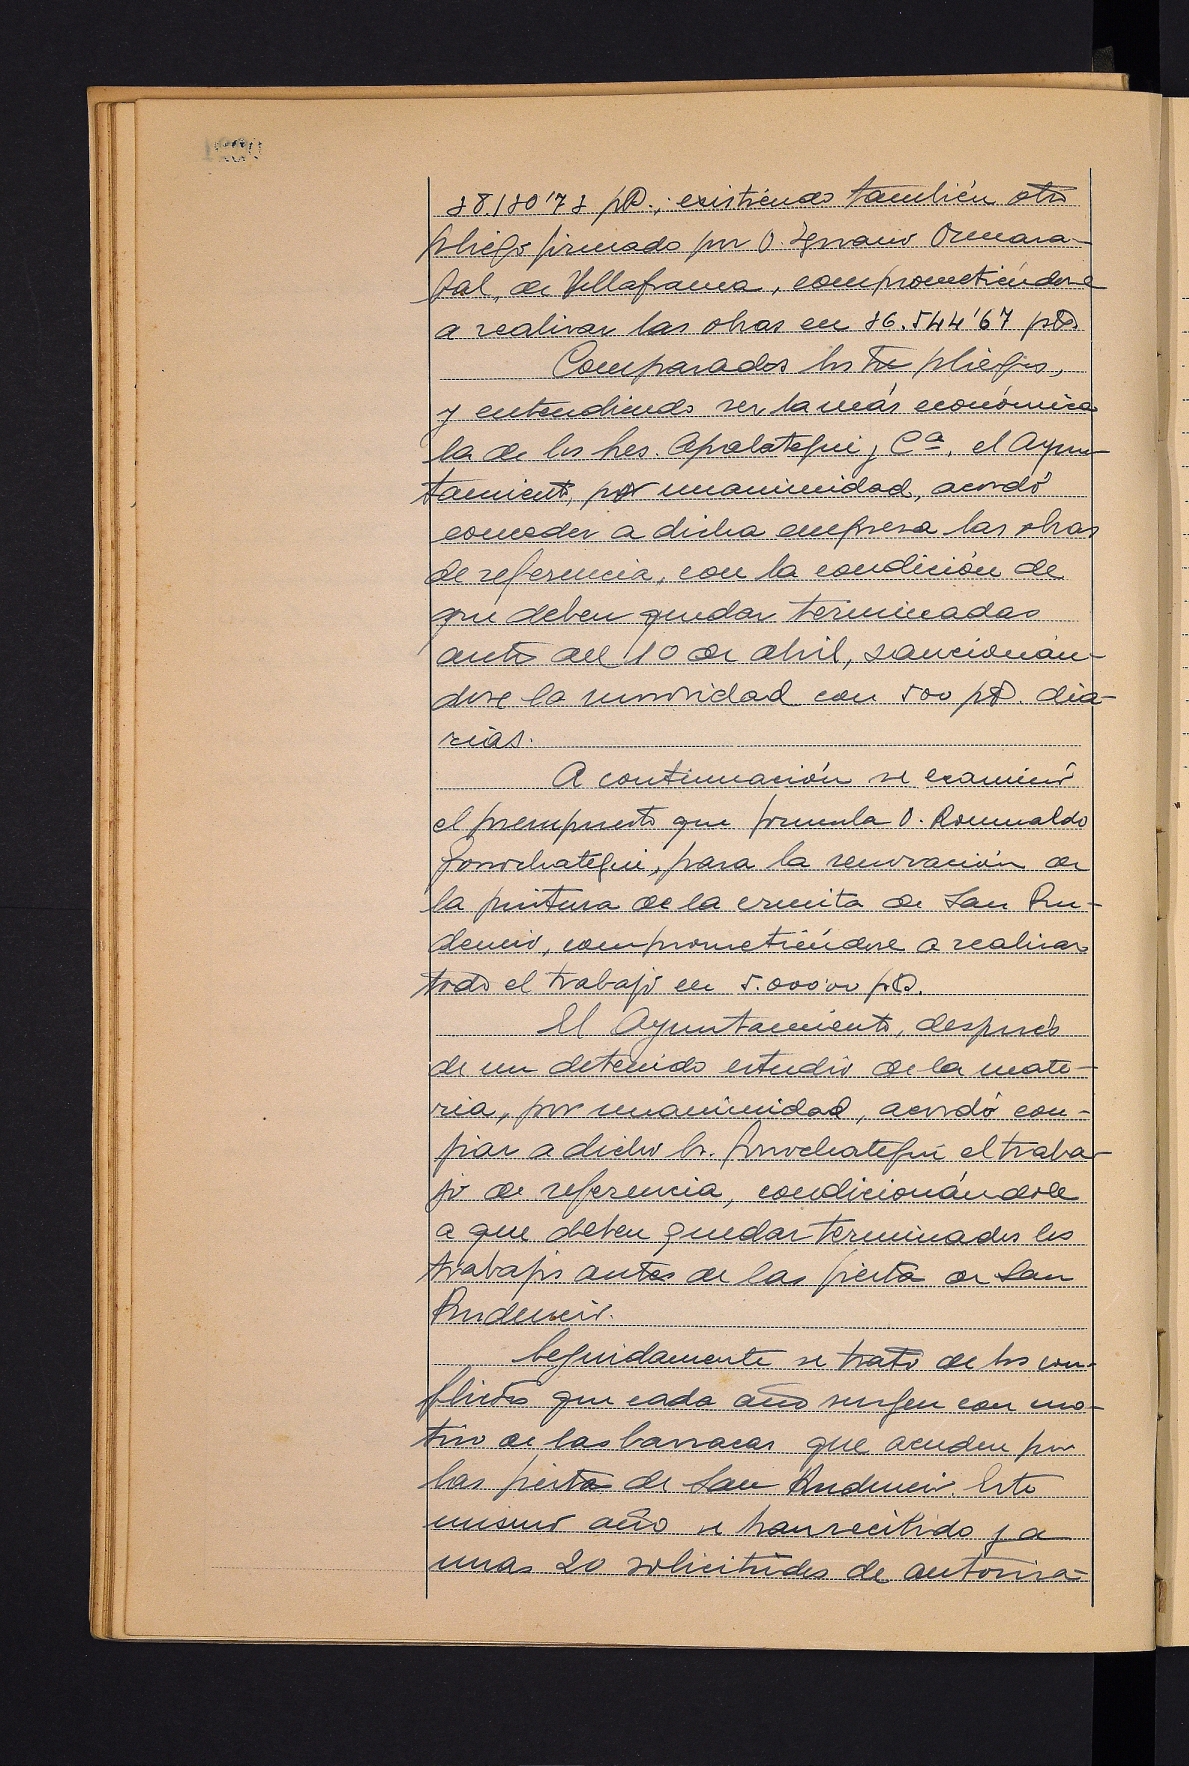 38.130'73 pts.; existiendo también otro
pliego firmado por D. Ignacio Ormaza-
bal, de Villafranca, comprometiéndose
a realizar las obras en 36.544'67 pts.
Comparados los tres pliegos,
y entendiendo ser la más económica
la de los Sres. Apalategui y Cª, el Ayun-
tamiento, por unanimidad, acordó
conceder a dicha empresa las obras
de referencia, con la condición de
que deben quedar terminadas
antes del 10 de abril, sancionán-
dose la morosidad con 500 pts. dia-
rias.
A continuación se examinó
el presupuesto que formula D. Romualdo
Gorrochategui, para la renovación de
la pintura de la ermita de San Pru-
dencio, comprometiéndose a realizar
todo el trabajo en 5.000'00 pts.
El Ayuntamiento, después
de un detenido estudio de la mate-
ria, por unanimidad, acordó con-
fiar a dicho Sr. Gorrochategui el traba-
jo de referencia, condicionándole
a que deben quedar terminados los
trabajos antes de las fiestas de San
Prudencio.
Seguidamente se trató de los con-
flictos que cada año surgen con mo-
tivo de las barracas que acuden por
las fiestas de San Prudencio. Este
mismo año se han recibido ya
unas 20 solicitudes de autoriza-